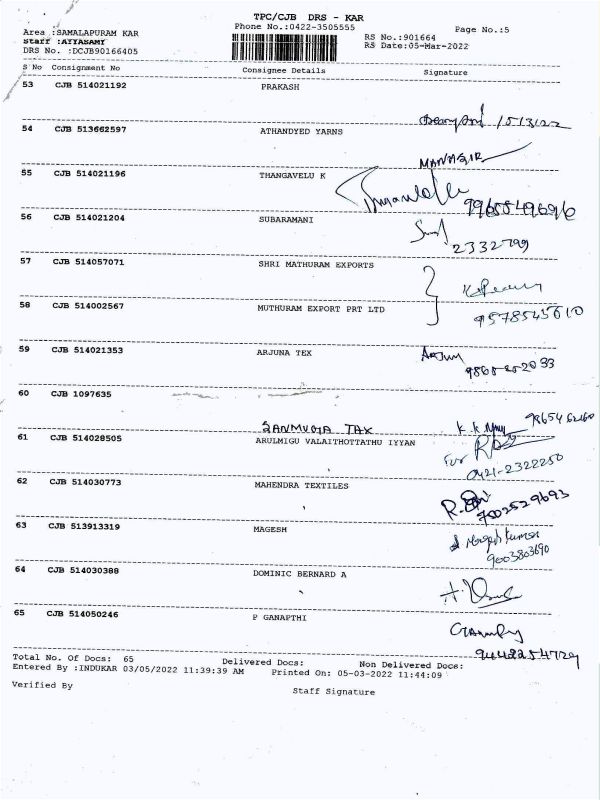 TPC/CJB DRS - KAR
Phone No.:0422-3505555
Page No.:5
Area :SAMALAPURAM KAR
RS No.:901664
Staff :AIYASAMI
RS Date:05-Mar-2022
DRS No. :DCJB90166405
S No Consignment No Consignee Details Signature
53 CJB 514021192 PRAKASH
15/3/22
54 CJB 513662597 ATHANDYED YARNS
MANAGIR
55 CJB 514021196 THANGAVELU K
9965549696
56 CJB 514021204 SUBARAMANI
2332799
57 CJB 514057071 SHRI MATHURAM EXPORTS
58 CJB 514002567 MUTHURAM EXPORT PRT LTD
9578545610
59 CJB 514021353 ARJUNA TEX
Arjun
60 CJB 1097635
SANMUGA TAX
61 CJB 514028505 ARULMIGU VALAITHOTTATHU IYYAN
For
0421-2322250
62 CJB 514030773 MAHENDRA TEXTILES
7002529693
63 CJB 513913319 MAGESH
9003803690
64 CJB 514030388 DOMINIC BERNARD A
65 CJB 514050246 P GANAPTHI
Total No. Of Docs: 65 Delivered Docs: Non Delivered Docs:
Entered By :INDUKAR 03/05/2022 11:39:39 AM Printed On: 05-03-2022 11:44:09
Verified By
Staff Signature